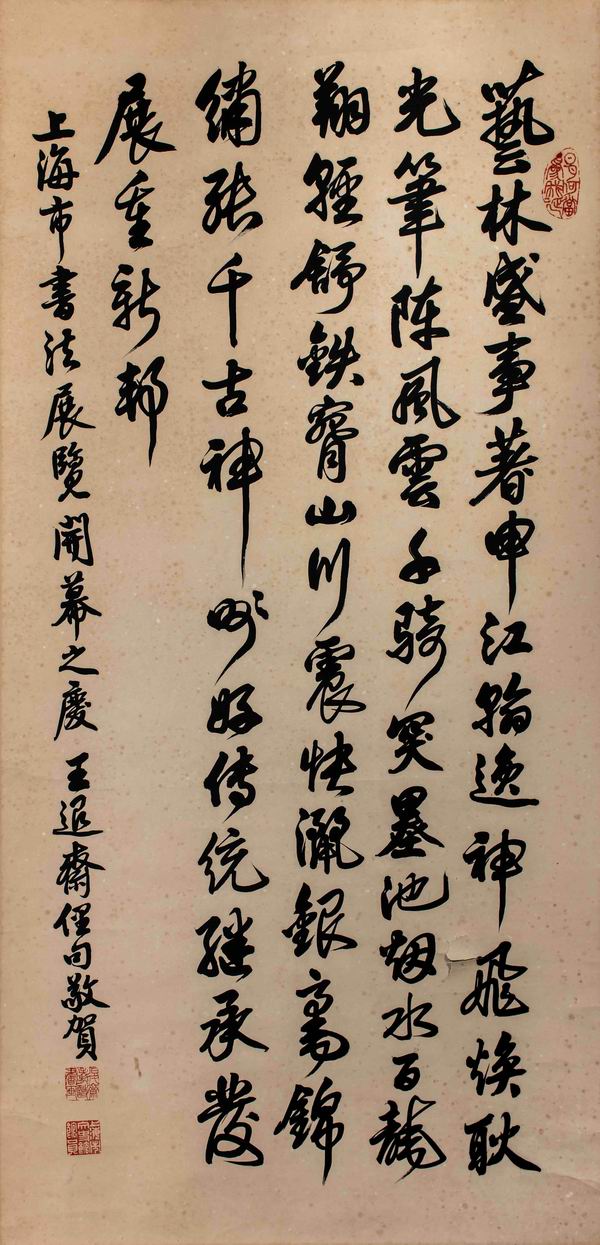 藝林盛事著申江翰逸神飛煥耿
光筆陣風雲千騎突墨池烟水百龍
翔輕舒鐵膂山川震快灑銀毫錦
繡張千古神州好傳統繼承發
展重新邦
上海市書法展覽開幕之慶 王退齋俚句敬賀